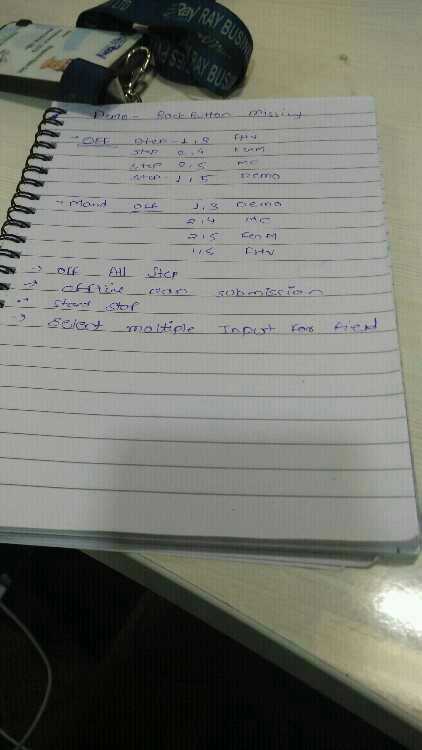 RAY BUSIN
RAY BUSI
LTD
Demo - Back Button Missing
→ OFF Step - 1, 3 FHV
Step 2, 4 FenM
Step 2, 5 MC
Step - 1, 5 Demo
→ Mand OFF 1, 3 Demo
2, 4 MC
2, 5 FenM
1, 5 FHV
→ OFF All Step
→ offline submission
→ Start Stop
→ Select multiple Input For field